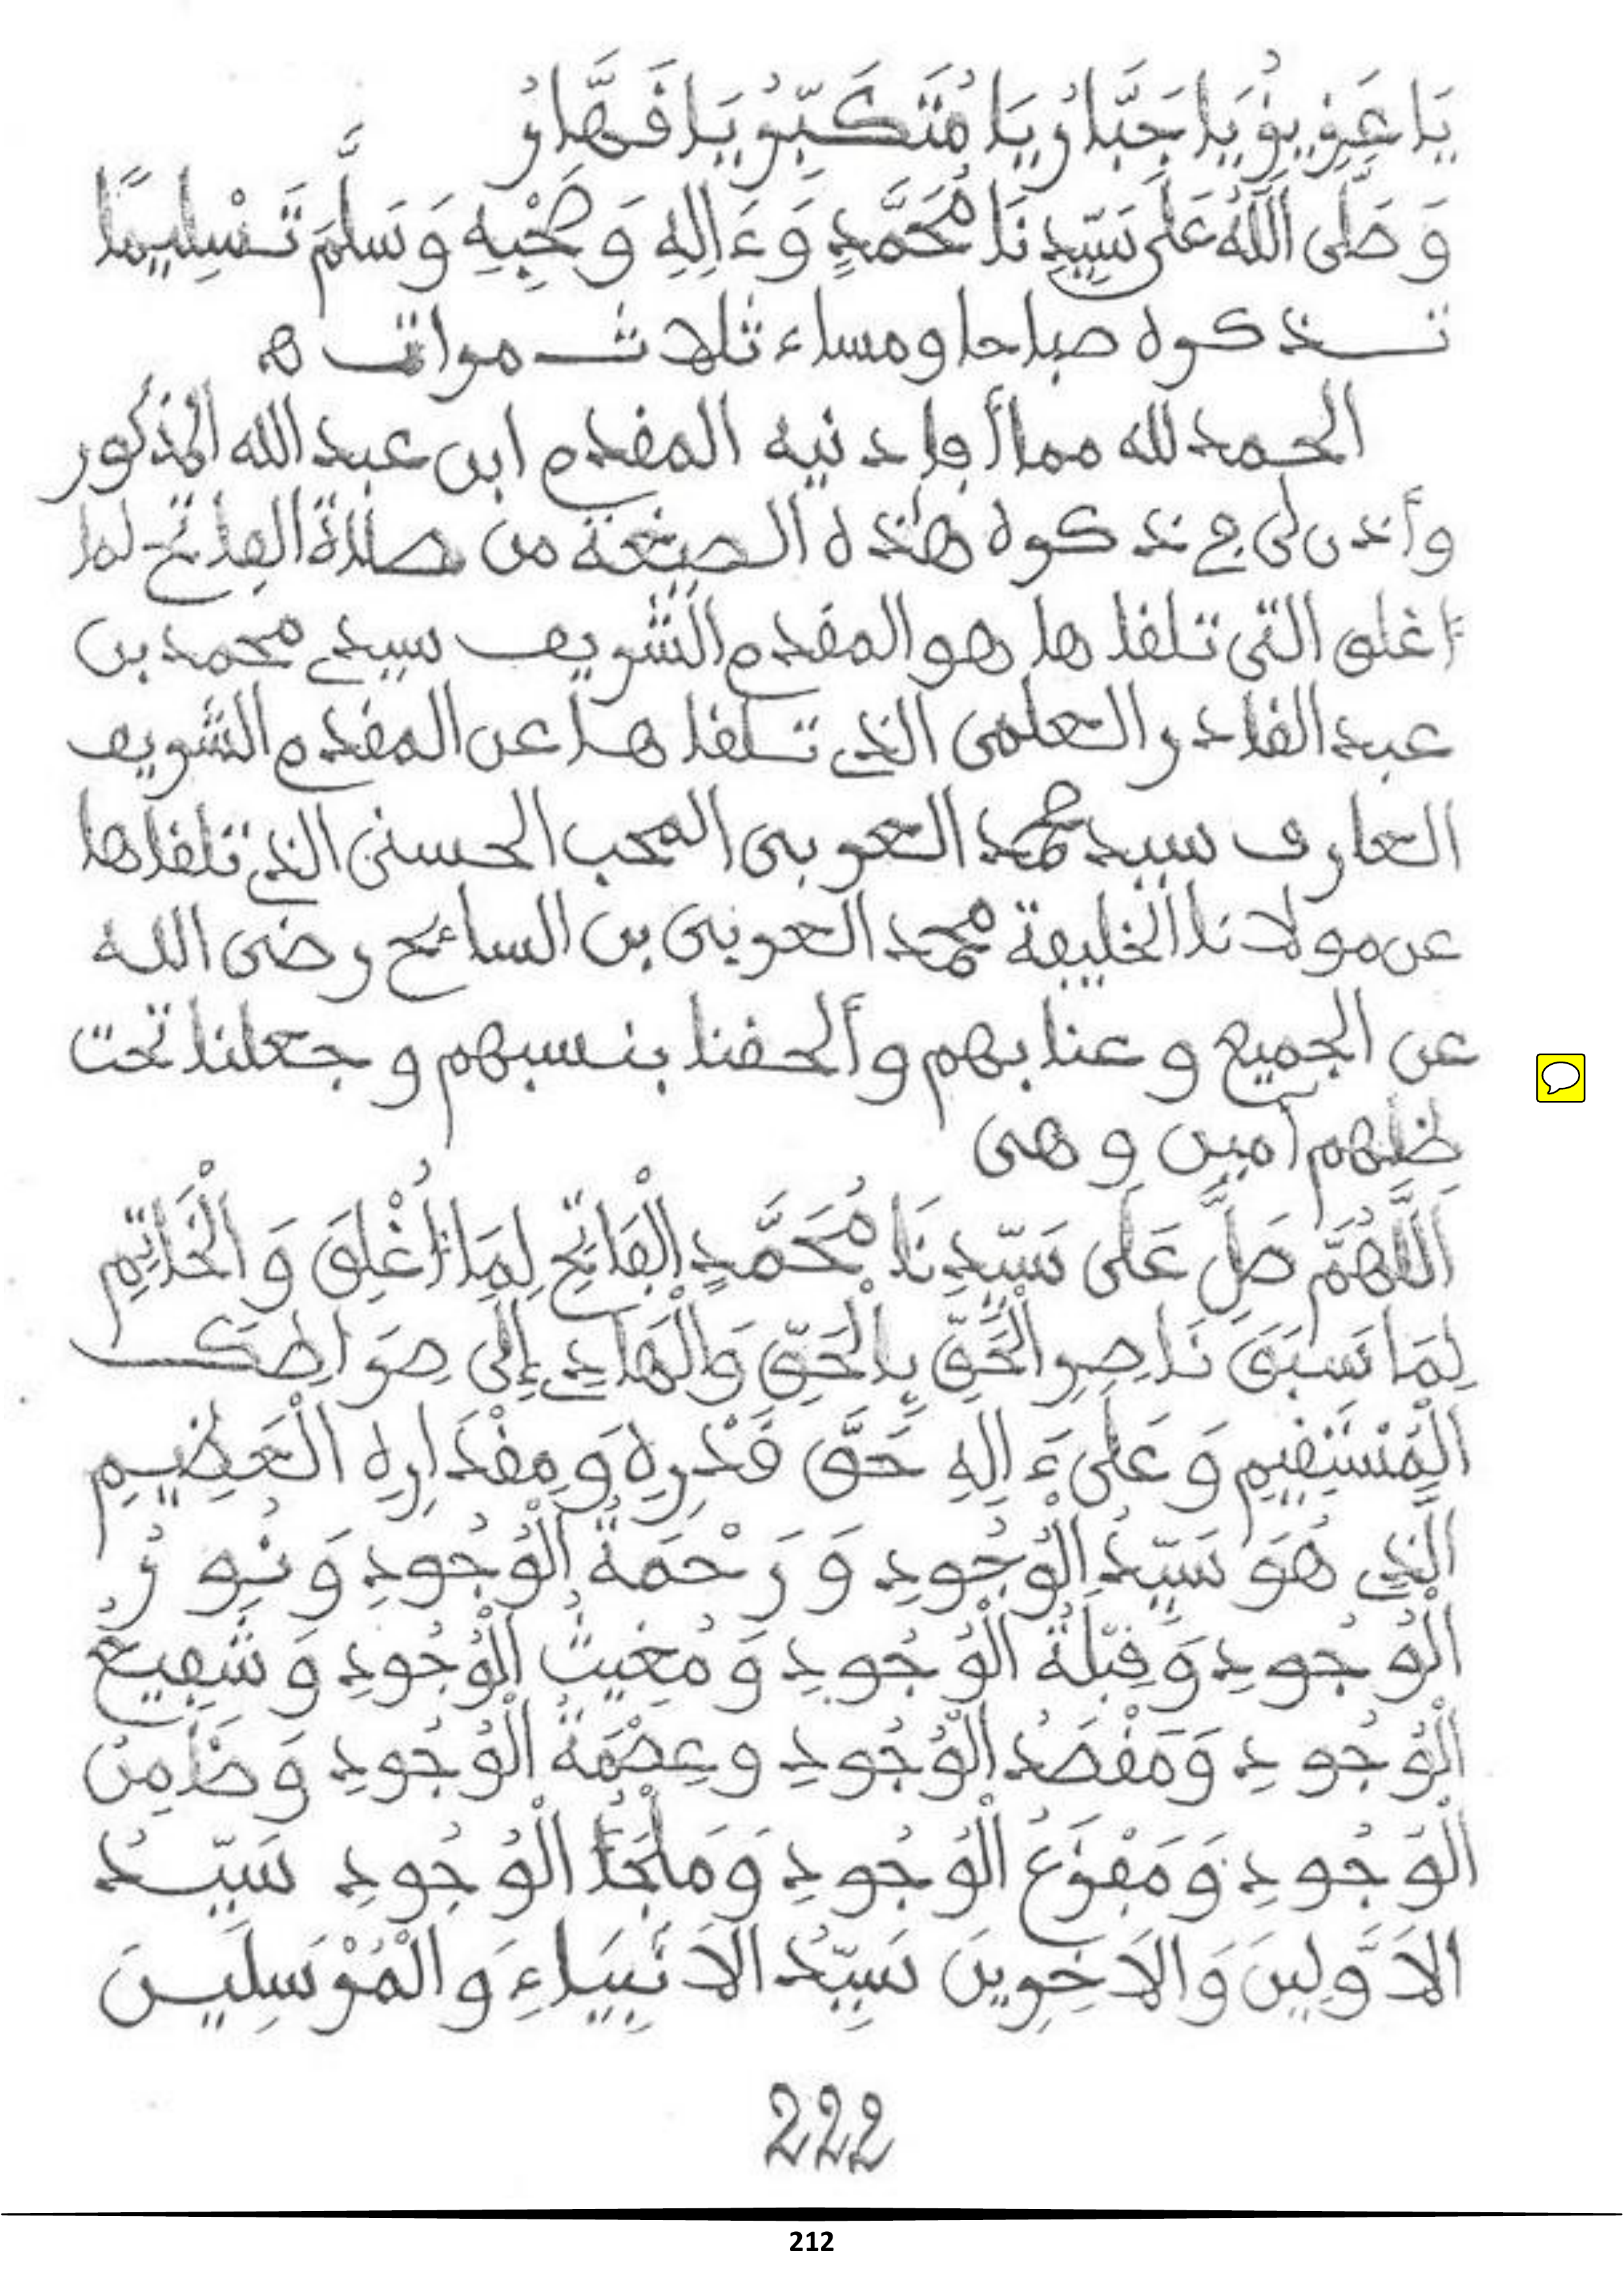 يَا عَزِيزُ يَا جَبَّارُ يَا مُتَكَبِّرُ يَا قَهَّارُ
وَصَلَّى اللَّهُ عَلَى سَيِّدِنَا مُحَمَّدٍ وَءَالِهِ وَصَحْبِهِ وَسَلَّمَ تَسْلِيمًا
تذكره صباحا ومساء ثلاث مرات ه
الحمد لله مما أفادنيه المقدم ابن عبد الله المذكور
وأذن لي في ذكره هذه الصيغة من صلاة الفاتح لما
أغلق التي تلقاها هو المقدم الشريف سيدي محمد بن
عبد القادر العلمي الذي تلقاها عن المقدم الشريف
العارف سيد محمد العربي المحب الحسني الذي تلقاها
عن مولانا الخليفة محمد العربي بن السائح رضي الله
عن الجميع وعنا بهم وألحقنا بنسبهم وجعلنا تحت
ظلهم آمين وهي
اَللَّهُمَّ صَلِّ عَلَى سَيِّدِنَا مُحَمَّدٍ الْفَاتِحِ لِمَا أُغْلِقَ وَالْخَاتِمِ
لِمَا سَبَقَ نَاصِرِ الْحَقِّ بِالْحَقِّ وَالْهَادِي إِلَى صِرَاطِكَ
الْمُسْتَقِيمِ وَعَلَى ءَالِهِ حَقَّ قَدْرِهِ وَمِقْدَارِهِ الْعَظِيمِ
الَّذِي هُوَ سَيِّدُ الْوُجُودِ وَرَحْمَةُ الْوُجُودِ وَنُورُ
الْوُجُودِ وَقِبْلَةُ الْوُجُودِ وَمُغِيثُ الْوُجُودِ وَشَفِيعُ
الْوُجُودِ وَمَقْصَدُ الْوُجُودِ وعِصْمَةُ الْوُجُودِ وَضَامِنُ
الْوُجُودِ وَمَفْزَعُ الْوُجُودِ وَمَلْجَأُ الْوُجُودِ سَيِّدُ
الاَوَّلِينَ وَالاَخِرِينَ سَيِّدُ الاَنْبِيَاءِ وَالْمُرْسَلِينَ
222
212